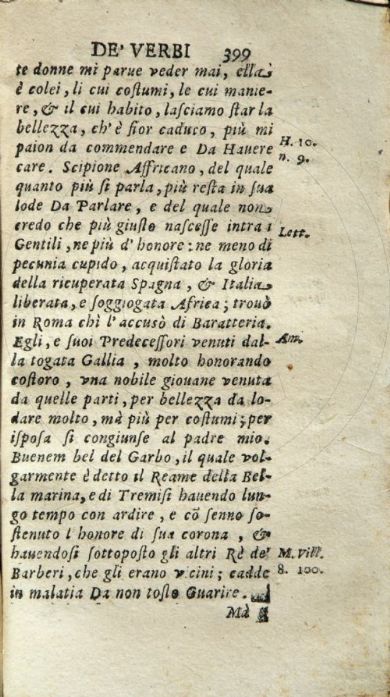 DE' VERBI 399
te donne mi parue veder mai, ella
è colei, li cui coſtumi, le cui manie-
re, & il cui habito, laſciamo ſtar la
bellezza, ch' è fior caduco, più mi
paion da commendare e Da Hauere
care. Scipione Affricano, del quale
quanto più ſi parla, più reſta in ſua
lode Da Parlare, e del quale non
credo che più giuſto naſceſſe intra i
Gentili, ne più d' honore: ne meno di
pecunia cupido, acquiſtato la gloria
della ricuperata Spagna, & Italia
liberata, e ſoggiogata Africa; trouò
in Roma chi l' accusò di Baratteria.
Egli, e ſuoi Predeceſſori venuti dal-
la togata Gallia, molto honorando
coſtoro, vna nobile giouane venuta
da quelle parti, per bellezza da lo-
dare molto, mà più per coſtumi; per
iſpoſa ſi congiunſe al padre mio.
Buenem bel del Garbo, il quale vol-
garmente è detto il Reame della Bel-
la marina, e di Tremiſi hauendo lun-
go tempo con ardire, e cō ſenno ſo-
ſtenuto l honore di ſua corona, &
hauendoſi ſottopoſto gli altri Rè de'
Barberi, che gli erano vicini; cadde
in malatia Da non toſto Guarire.
Mà
H. 10.
n. 9.
Lett.
Am.
M. vill.
8. 100.